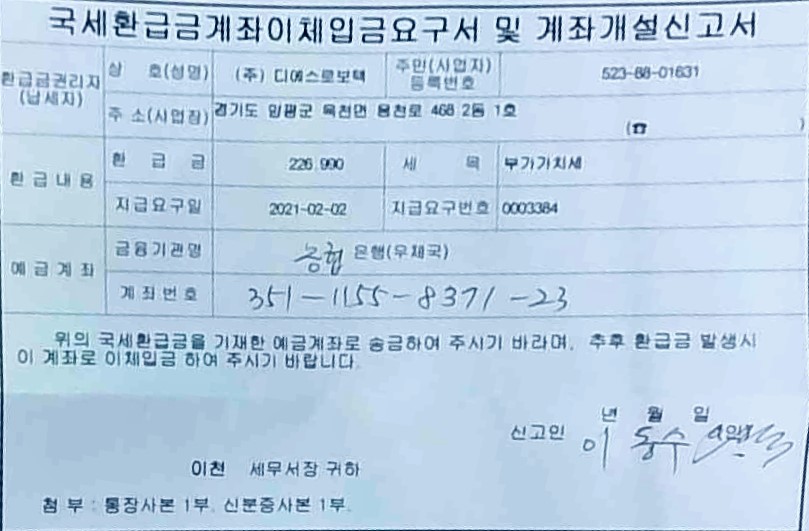 국세환급금계좌이체입금요구서 및 계좌개설신고서
환급금권리자 (납세자)
상 호(성명) (주) 디에스로보텍 주민(사업자) 등록번호 523-88-01631
주 소(사업장) 경기도 양평군 옥천면 용천로 468 2동 1호
(☎ )
환급내용
환 급 금 226,990 세 목 부가가치세
지급요구일 2021-02-02 지급요구번호 0003384
예금계좌
금융기관명 농협 은행(우체국)
계좌번호 351-1155-8371-23
위의 국세환급금을 기재한 예금계좌로 송금하여 주시기 바라며, 추후 환급금 발생시
이 계좌로 이체입금 하여 주시기 바랍니다.
년 월 일
신고인 이동수
이천 세무서장 귀하
첨 부 : 통장사본 1부. 신분증사본 1부.